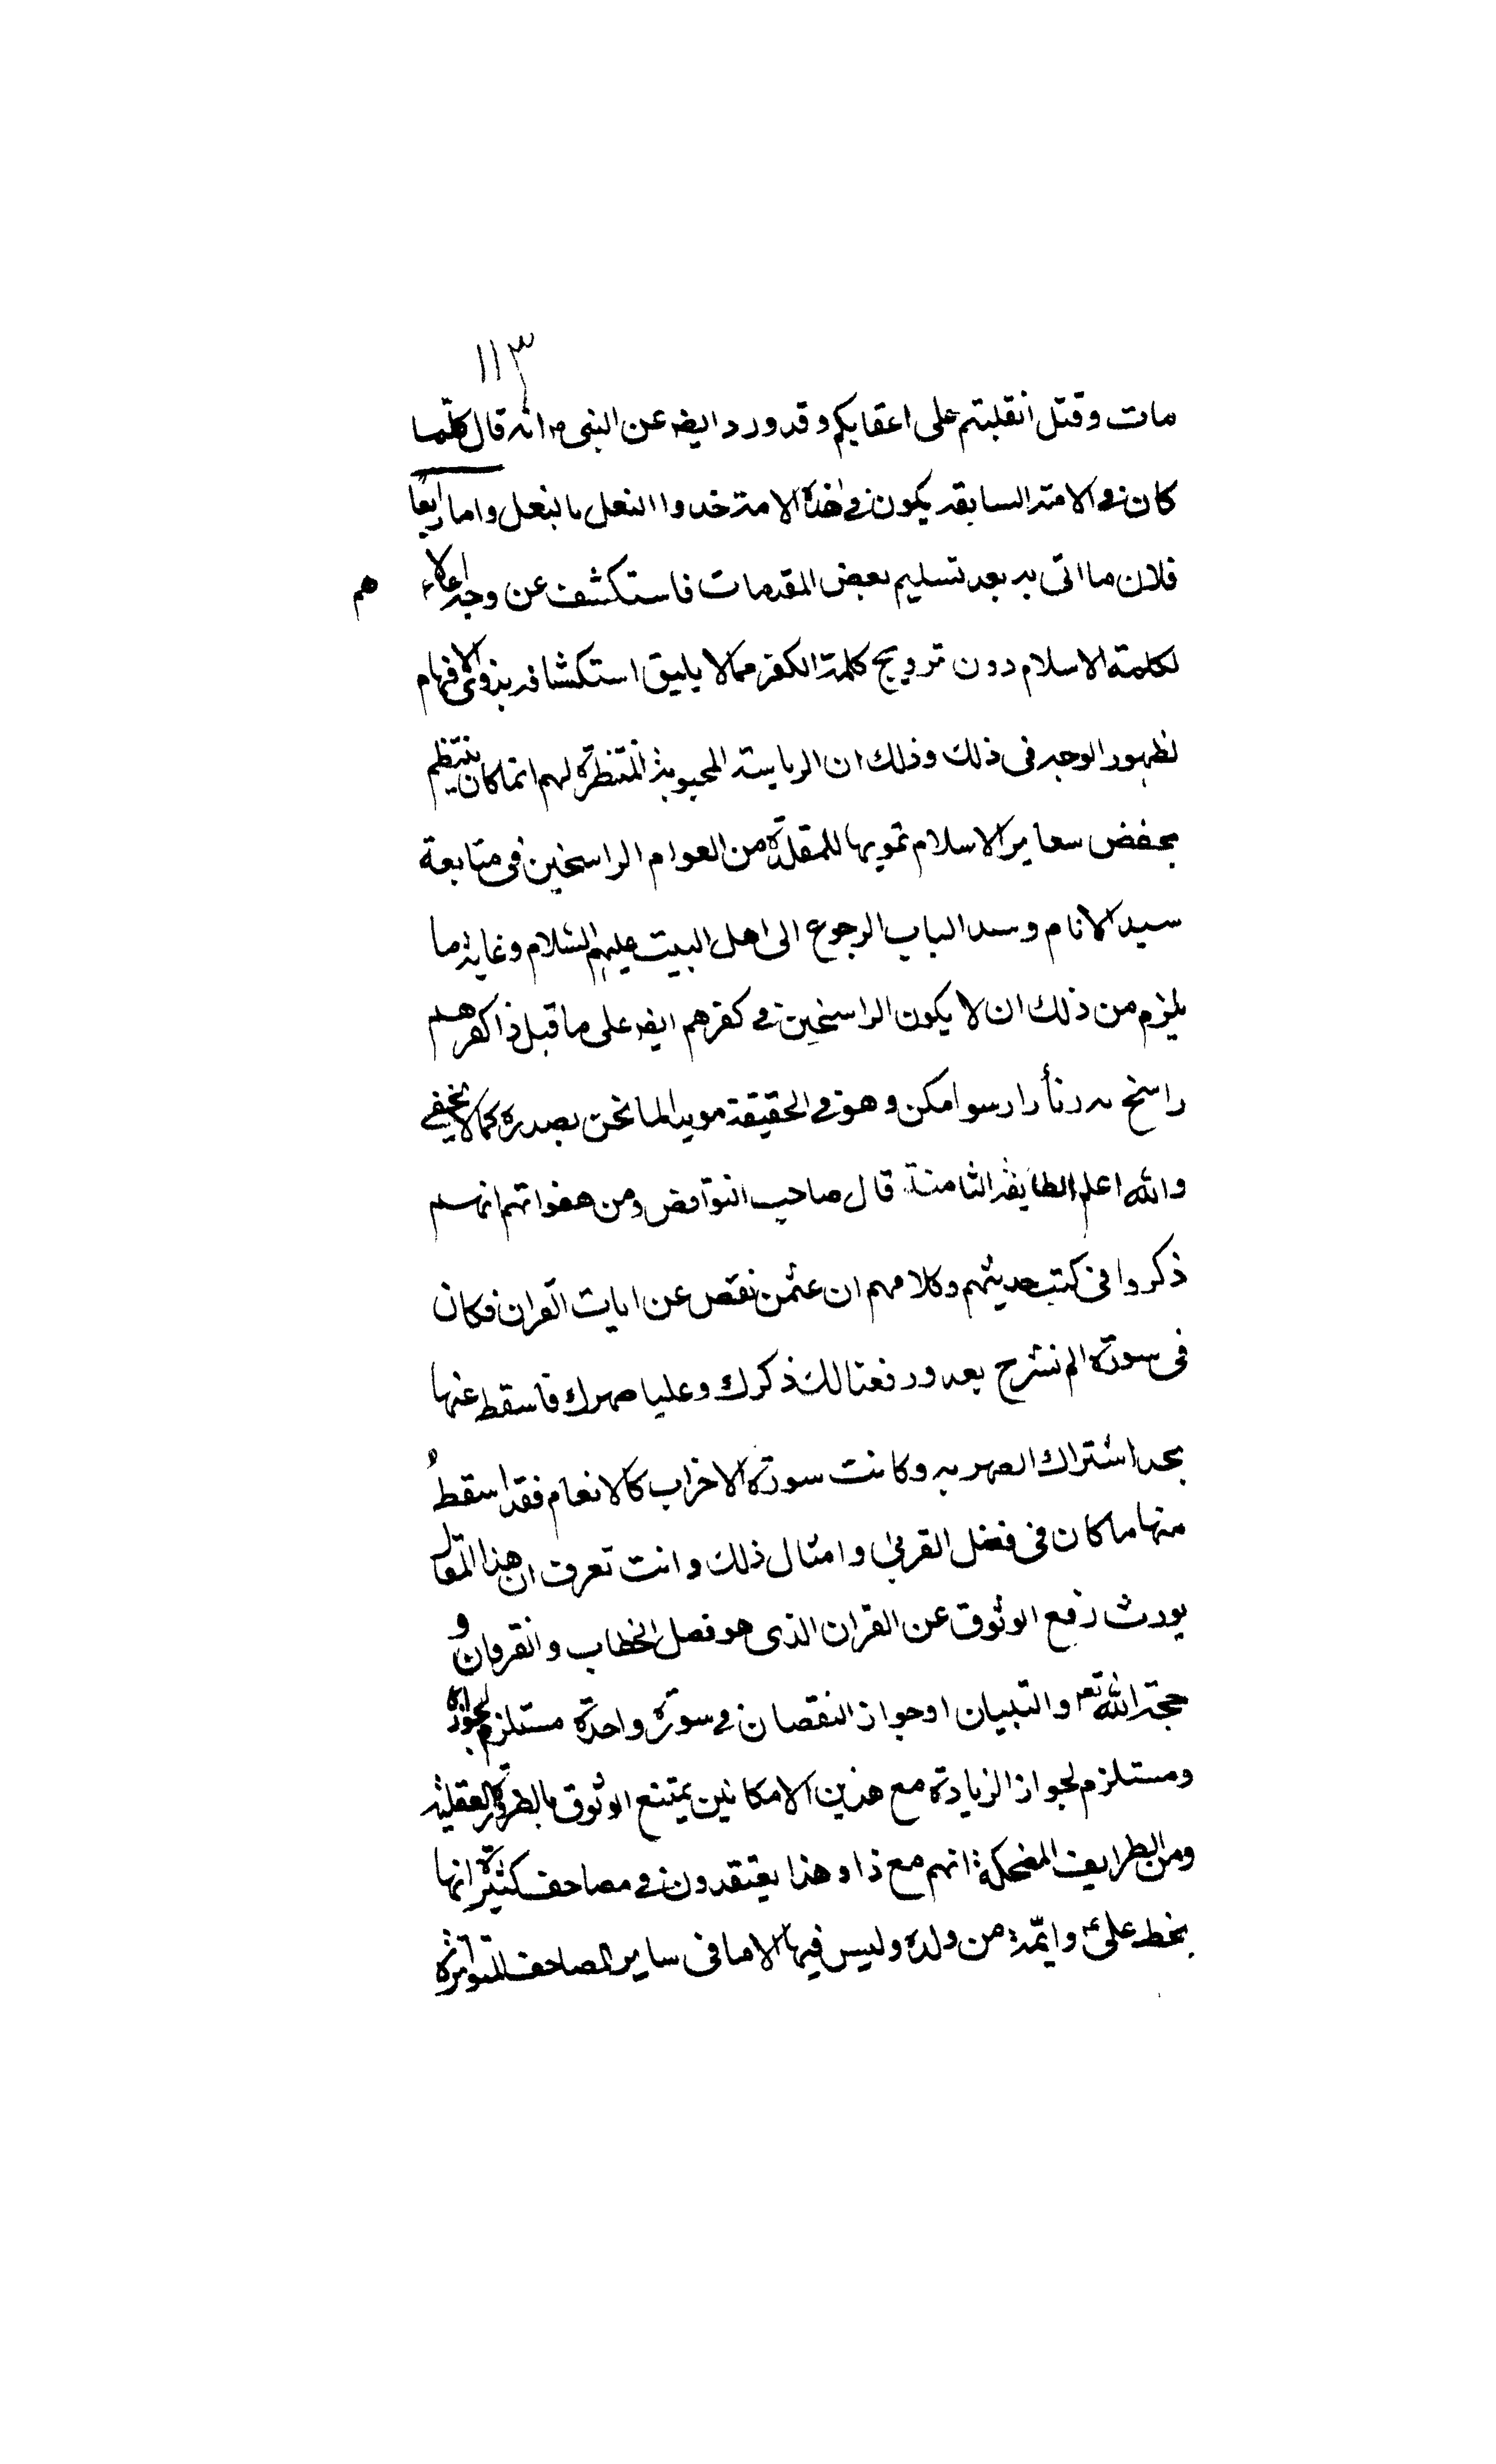 ١١٣
مات وقتل انقلبتم على اعقابكم وقد ورد ايضه عن النبى ص انه قال كلّما
كان فى الامته السابقه يكون فى هذه الامته خدوا النعل بالنعل واما رابعًا
فلان ما اتى به بعد تسليم بعض المقدمات فاستكشف عن وجه اعلاء هم
لكلمة الاسلام دون ترويج كلمة الكفر ممالا يليق استكشافه بذوى الافهام
لظهور الوجه فى ذلك وذلك ان الرياسته المحبوبة المنتظرة لهم انما كان ينتظم
بحفض سعاير الاسلام تمويها للمقلدة من العوام الراسخين فى متابعة
سيد الانام وسد الباب الرجوع الى اهل البيت عليهم السّلام وغاية ما
يلزم من ذلك ان لا يكون الراسخين فى كفرهم ايضه على ما قبل ذا كفر هم
راسخ مكن وهو فى الحقيقة مويد لما نحن بصدره كما لا يخفى
والله اعلم الطايفة الثامنة قال صاحب النواقض ومن هفواتهم انهم
ذكروا فى كتب حديثهم وكلامهم ان عثمن نقص عن ايات القران فكان
فى سورة الم نشرح بعد ورفعنا لك ذكرك وعليا صهرك فاسقط عنها
بحد اشتراك الصهريه وكانت سورة الاخراب كالانعام فقد اسقط
منها ما كان فى فضل القربى وامثال ذلك وانت تعرف ان هذا المقال
يورث رفع الوثوق عن القران الذى هو فصل الخطاب والفرقان و
حجته الله تعه والتبيان اوجواز النقصان فى سورة واحدة مستلزم لجوازه
ومستلزم لجواز الزيادة مع هذين الامكانين يمتنع الوثوق بالضرورة العقلية
ومن الطرايف المضحكة انهم مع ذا وهذا يعتقدون فى مصاحف كثيرة انها
بخط على ع وايمّة من ولده وليس فيها الا ما فى ساير المصاحف المتواترة